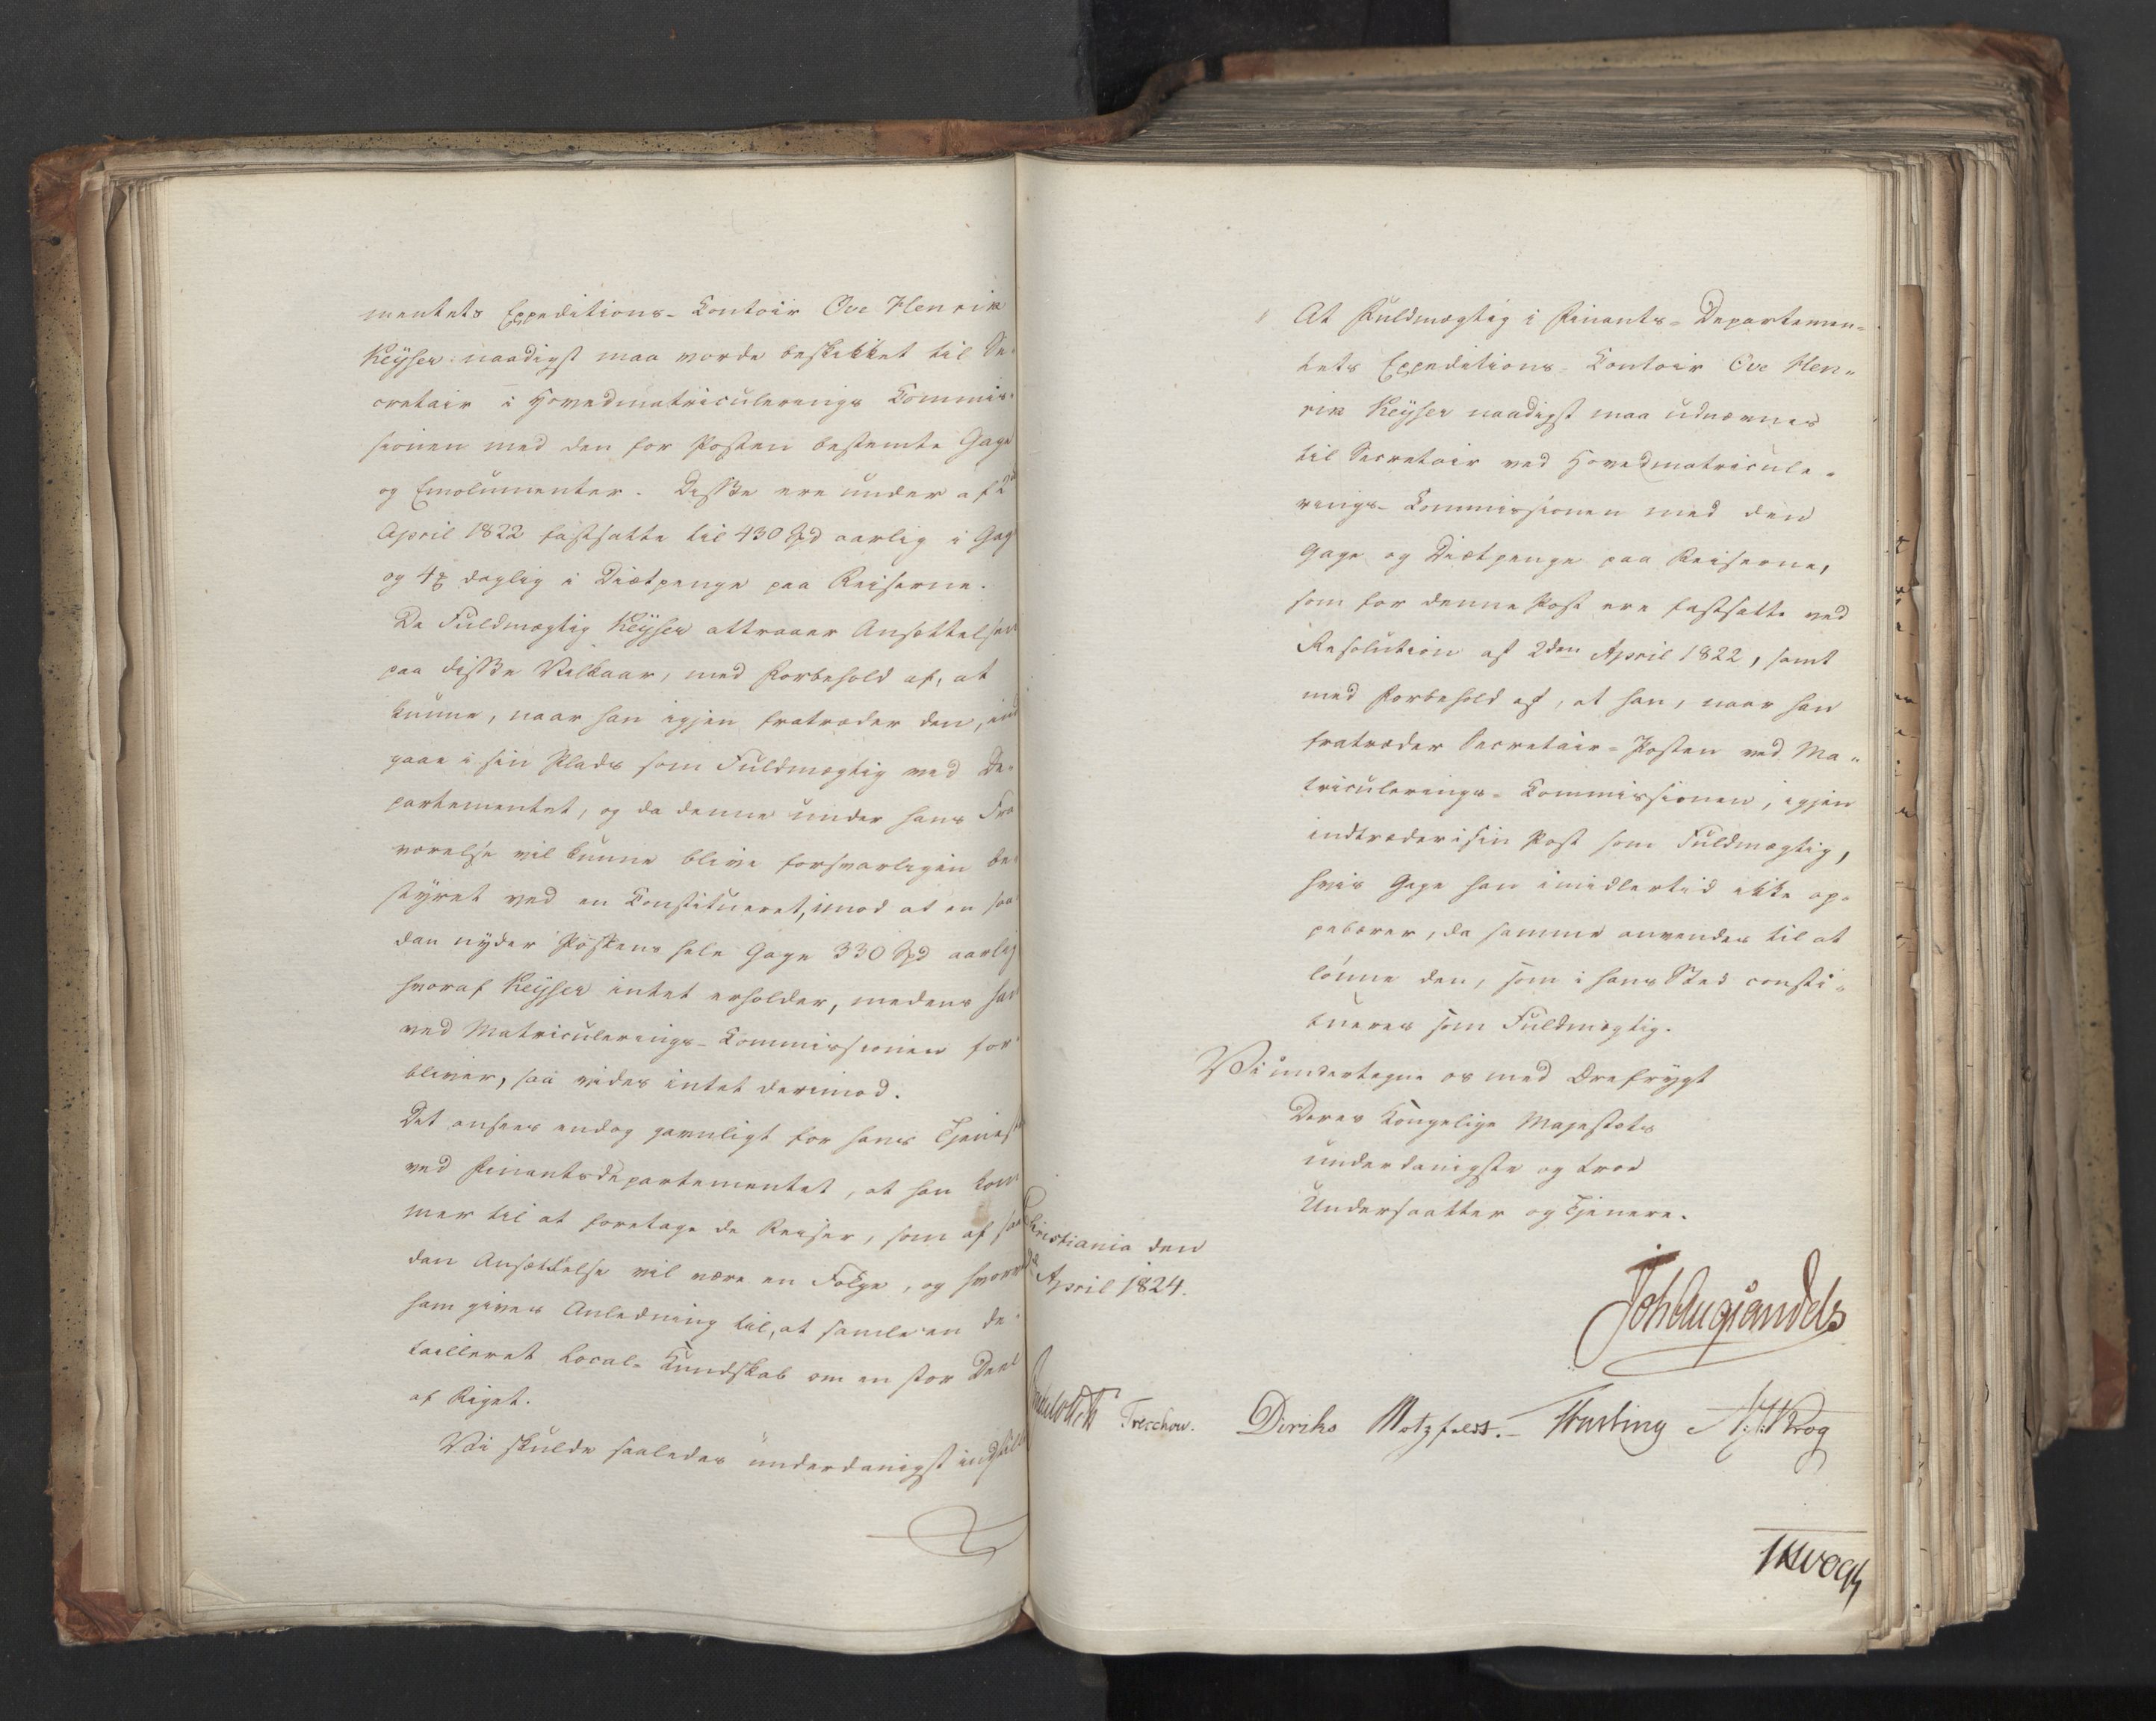 mentets Expeditions-Contoir Ove Henrik
Keyser naadigst maa vorde beskikket til Se-
cretair i Hovedmatriculerings Commis-
sionen med den for Posten bestemte Gage
og Emolumenter. Disse ere under af 2d
April 1822 fastsatte til 430 Spd aarlig i Gag
og 4 daglig i Diætpenge paa Reiserne.
Da Fuldmægtig Keyser attraaer Ansættelsen
paa disse Vilkaar, med Forbehold af, at
kunne, naar han igjen fratræder den, ind
gaae i sin Plads som Fuldmægtig ved De-
partementet, og da denne under hans Fra
værelse vil kunne blive forsvarligen be-
styret ved en Constitueret, imod at en saa
dan nyder Postens hele Gage 330 Spd aarlig
hvoraf Keyser intet erholder, medens han
ved Matriculerings-Commissionen for
bliver, saa vides intet derimod.
Det ansees endog gavnligt for hans Tjeneste
ved Finantsdepartementet, at han kom
mer til at foretage de Reiser, som af saa
dan Ansættelse vil være en Følge, og hvorved
ham gives Anledning til, at samle en de-
tailleret Local-Kundskab om en stor Deel
af Riget.
Vi skulde saaledes underdanigst indstille
At Fuldmægtig i Finants-Departemen-
tets Expeditions-Contoir Ove Hen-
rik Keyser naadigst maa udnævnes
til Secretair ved Hovedmatricule-
rings-Commissionen med den
Gage og Diætpenge paa Reiserne,
som for denne Post ere fastsatte ved
Resolution af 2den April 1822, samt
med Forbehold af, at han, naar han
fratræder Secretair-Posten ved Ma-
triculerings-Commissionen, igjen
indtræder i sin Post som Fuldmægtig,
hvis Gage han imidlertid ikke op-
pebærer, da samme anvendes til at
lønne den, som i hans Sted consti-
tueres som Fuldmægtig.
Vi undertegne os med Ærefrygt
Deres Kongelige Majestæts
underdanigste og troe
Undersaatter og Tjenere.
Christiania den
April 1824.
Joh Aug Sandels
Treschow. Diriks Motzfeldt. Fasting Krog
Vogt